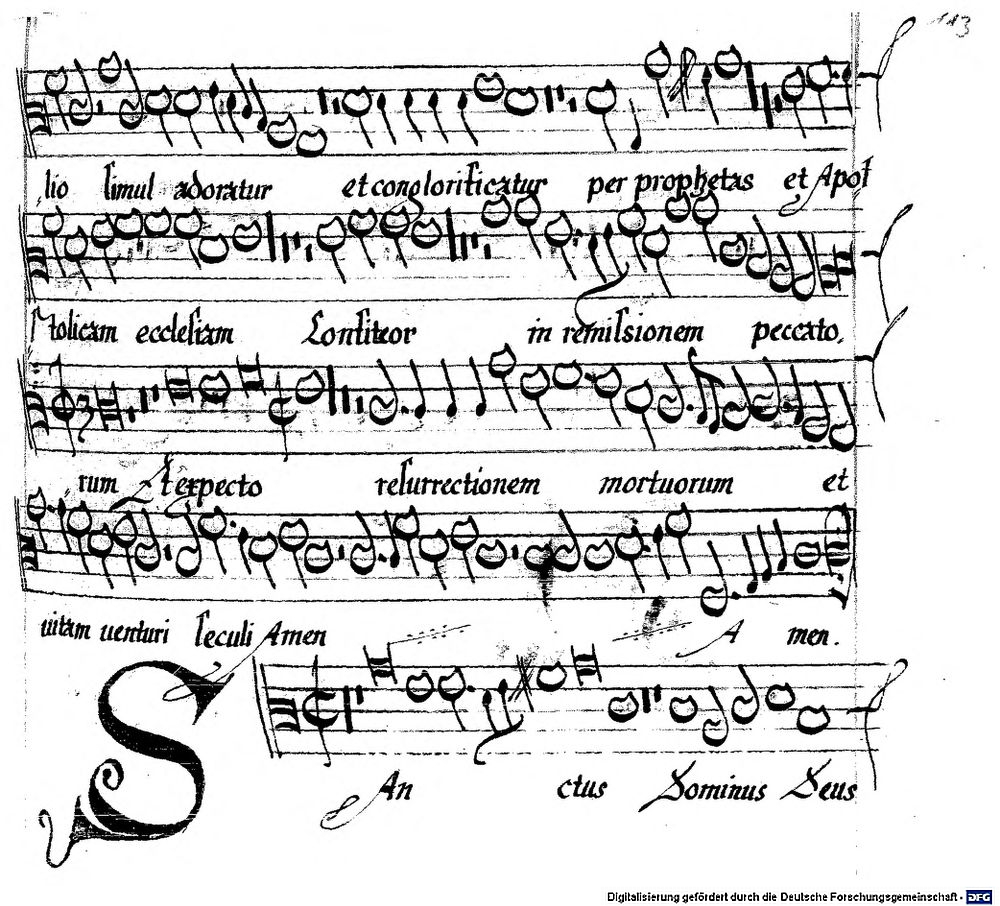 113
lio simul adoratur et conglorificatur per prophetas et Apos
stolicam ecclesiam Confiteor in remissionem peccato,
rum Et expecto resurrectionem mortuorum et
uitam uenturi seculi Amen A men.
SAn ctus Dominus Deus
Digitalisierung gefördert durch die Deutsche Forschungsgemeinschaft - DFG